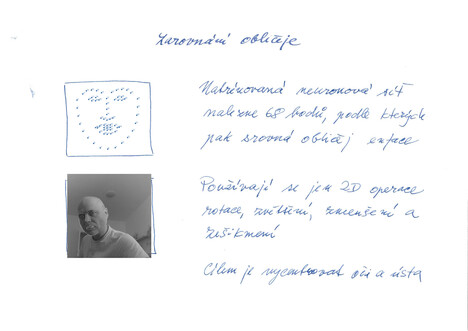 Zarovnání obličeje
Natrénovaná neuronová síť
nalezne 68 bodů, podle kterých
pak srovná obličej enface
Používají se jen 2D operace
rotace, zvětšení, zmenšení a
zešikmení
Cílem je vycentrovat oči a ústa